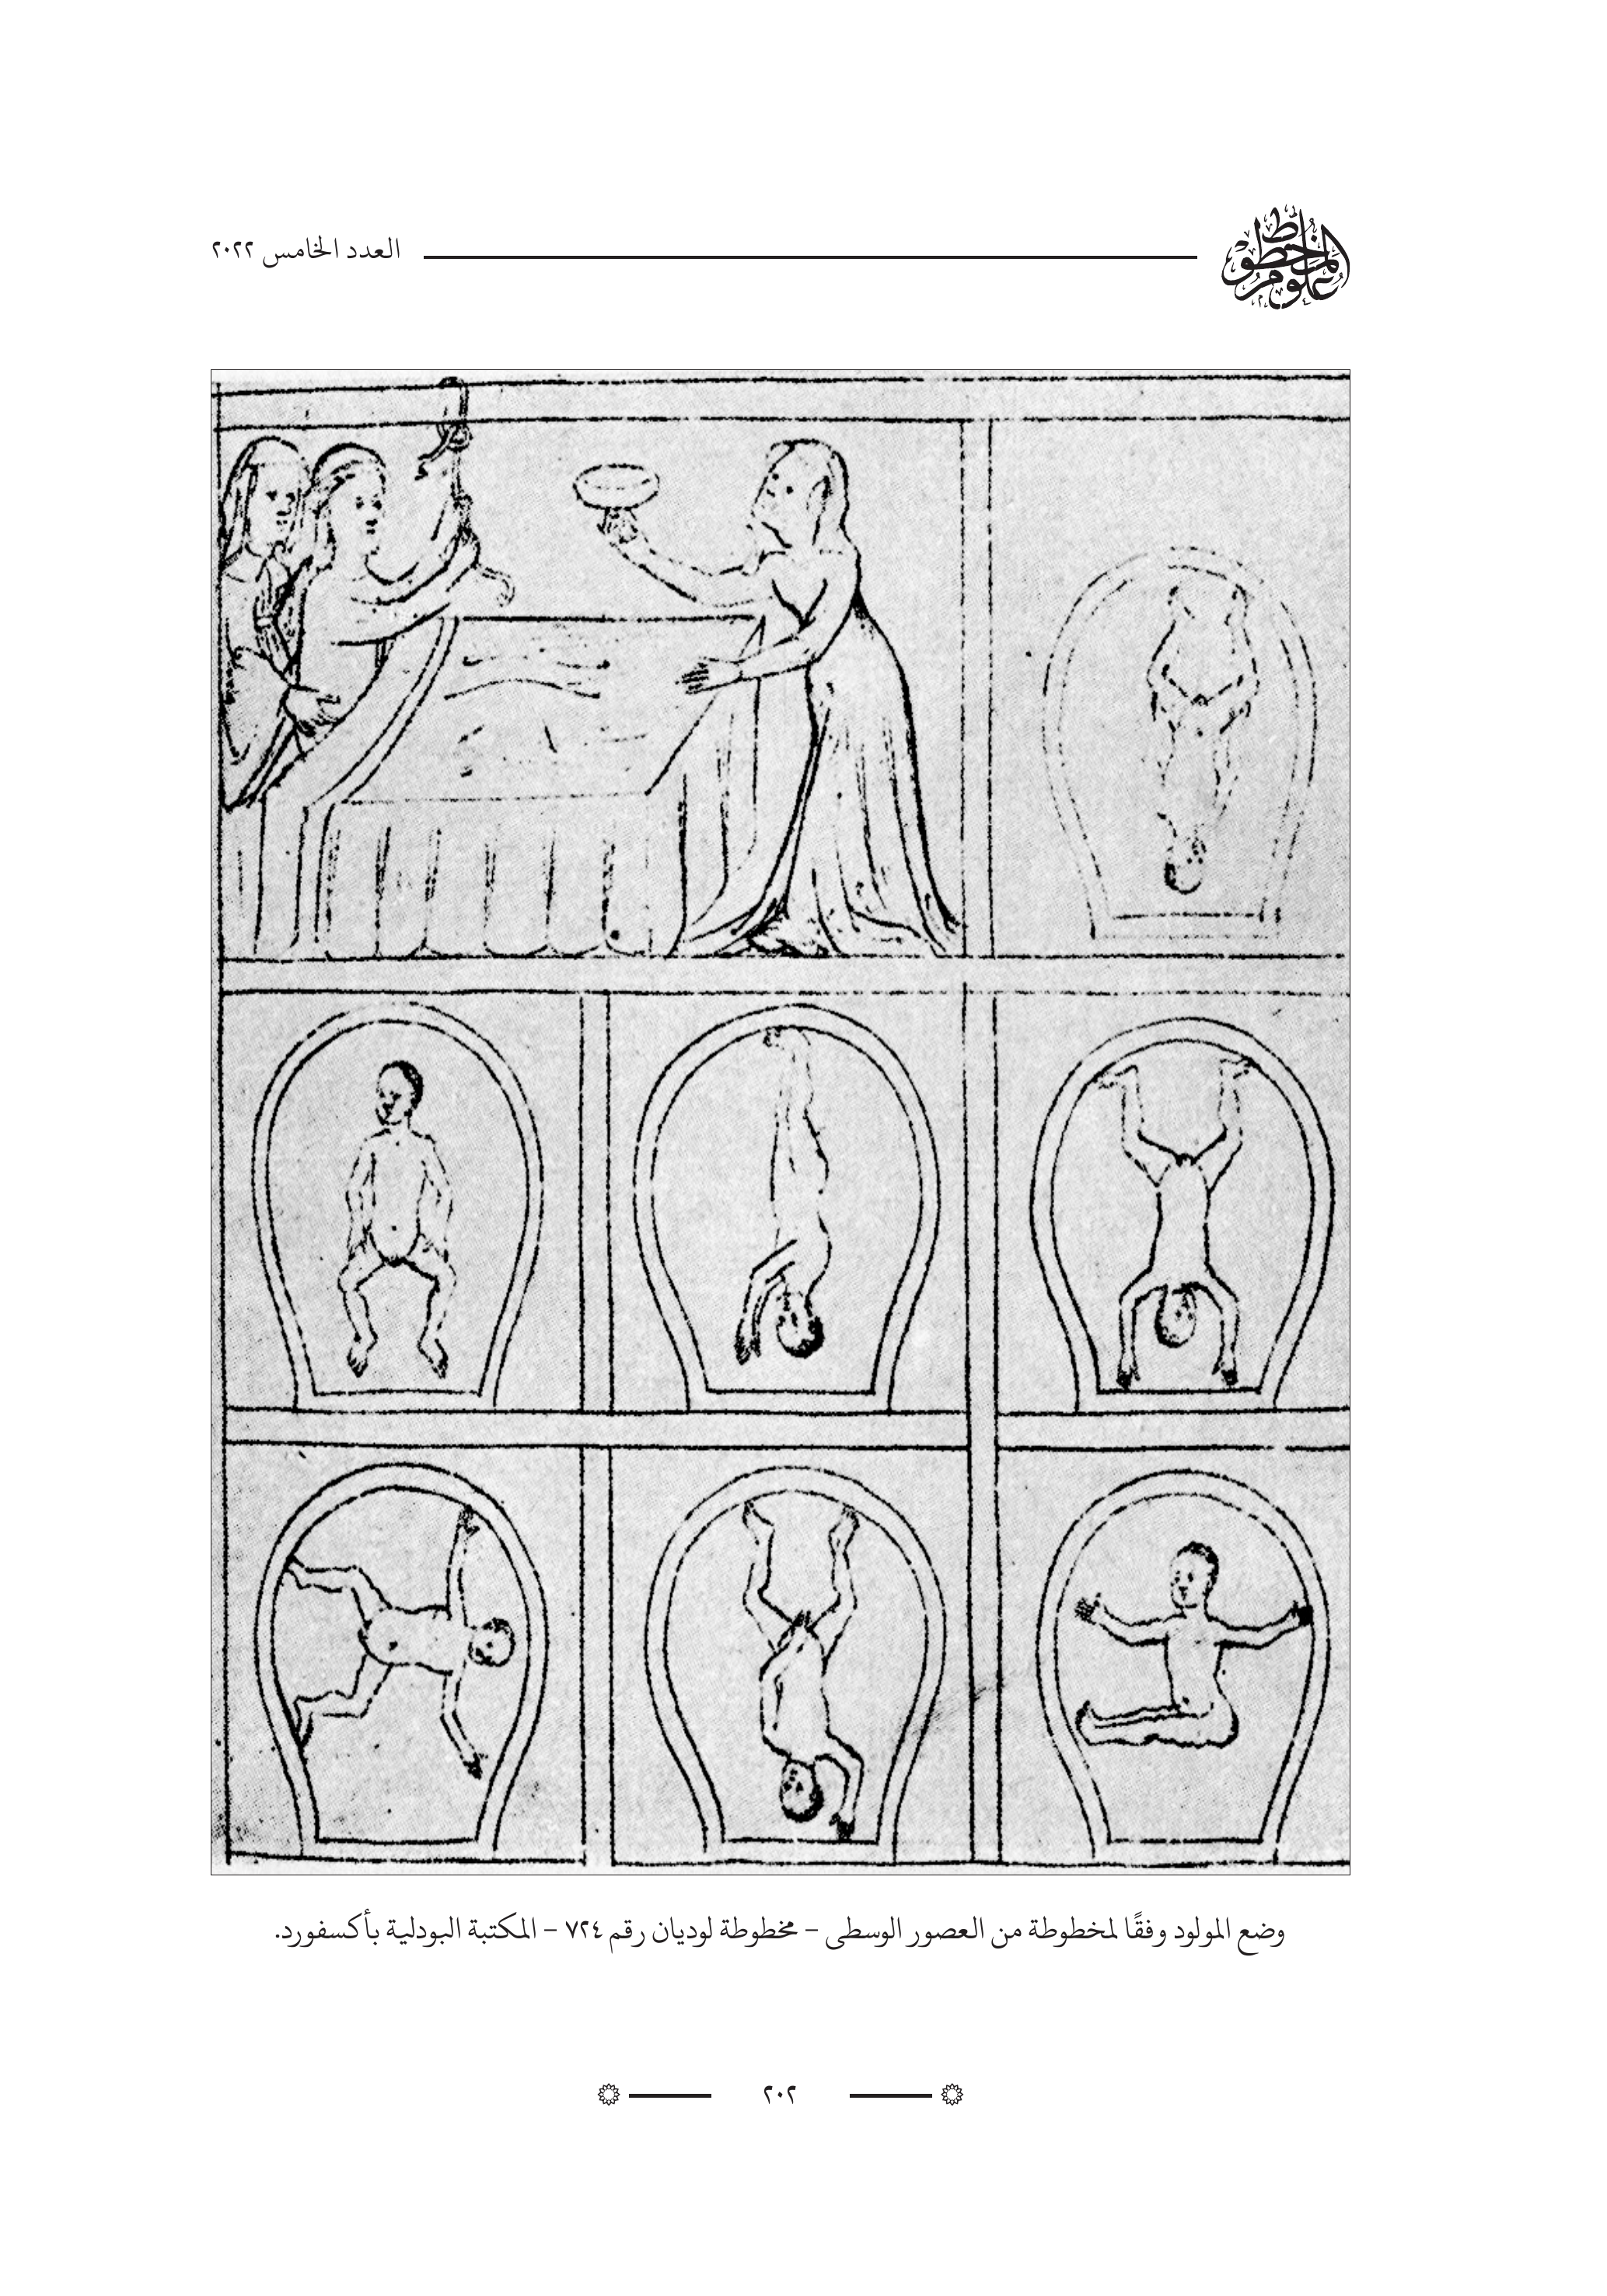 علوم المخطوط
العدد الخامس ٢٠٢٢
وضع المولود وفقًا لمخطوطة من العصور الوسطى – مخطوطة لوديان رقم ٧٢٤ – المكتبة البودلية بأكسفورد.
٢٠٢